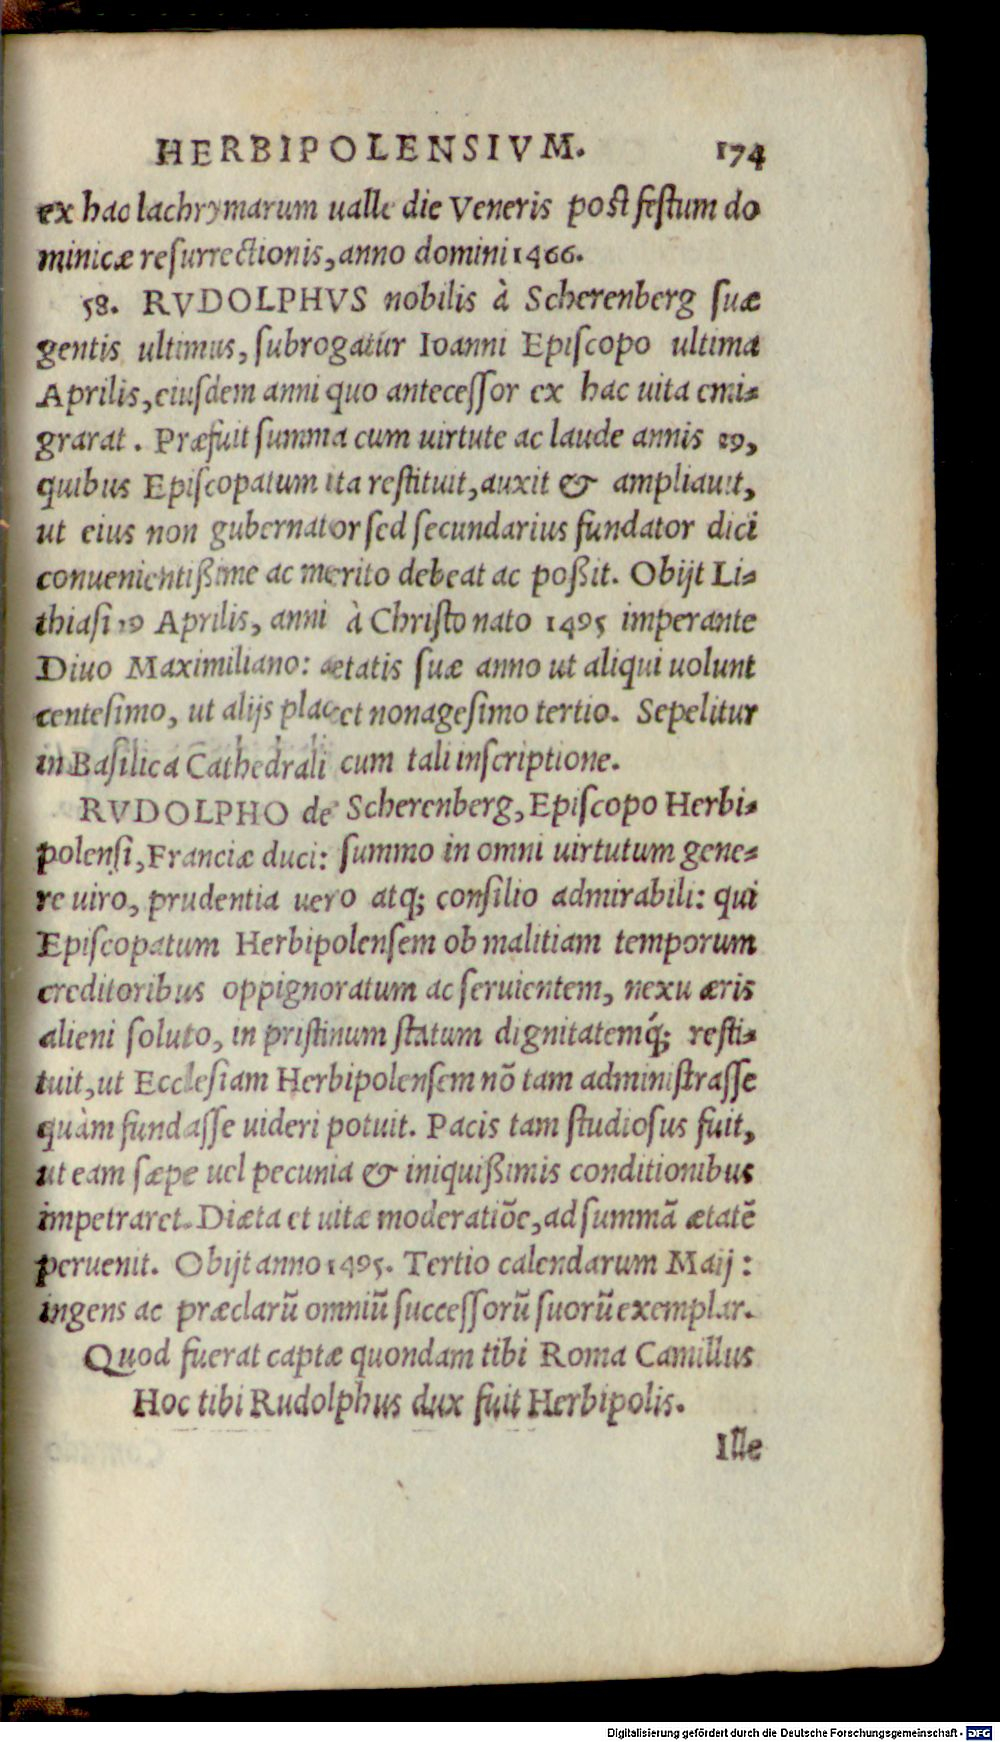 HERBIPOLENSIVM. 174
ex hac lachrymarum ualle die Veneris post festum do
minicæ resurrectionis, anno domini 1466.
58. RVDOLPHVS nobilis à Scherenberg suæ
gentis ultimus, subrogatur Ioanni Episcopo ultima
Aprilis, eiusdem anni quo antecessor ex hac uita emi-
grarat. Præfuit summa cum uirtute ac laude annis 29,
quibus Episcopatum ita restituit, auxit & ampliauit,
ut eius non gubernator sed secundarius fundator dici
conuenientißime ac merito debeat ac poßit. Obijt Li-
thiasi 29 Aprilis, anni à Christo nato 1495 imperante
Diuo Maximiliano: ætatis suæ anno ut aliqui uolunt
centesimo, ut alijs placet nonagesimo tertio. Sepelitur
in Basilica Cathedrali cum tali inscriptione.
RVDOLPHO de Scherenberg, Episcopo Herbi-
polensi, Franciæ duci: summo in omni uirtutum gene-
re uiro, prudentia uero atq; consilio admirabili: qui
Episcopatum Herbipolensem ob malitiam temporum
creditoribus oppignoratum ac seruientem, nexu æris
alieni soluto, in pristinum statum dignitatemq́; resti-
tuit, ut Ecclesiam Herbipolensem nō tam administrasse
quàm fundasse uideri potuit. Pacis tam studiosus fuit,
ut eam sæpe uel pecunia & iniquißimis conditionibus
impetraret. Diæta et uitæ moderatiōe, ad summā ætatē
peruenit. Obijt anno 1495. Tertio calendarum Maij:
ingens ac præclarū omniū successorū suorū exemplar.
Quod fuerat captæ quondam tibi Roma Camillus
Hoc tibi Rudolphus dux fuit Herbipolis.
Ille
Digitalisierung gefördert durch die Deutsche Forschungsgemeinschaft - DFG